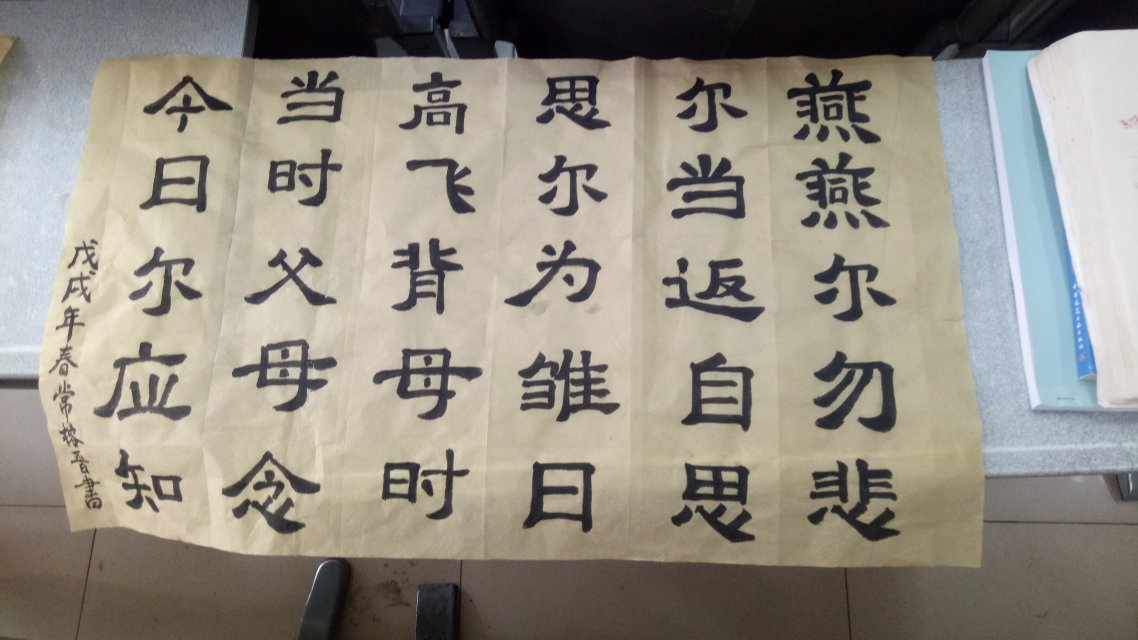 燕燕尔勿悲
尔当返自思
思尔为雏日
高飞背母时
当时父母念
今日尔应知
戊戌年春常榕晋书